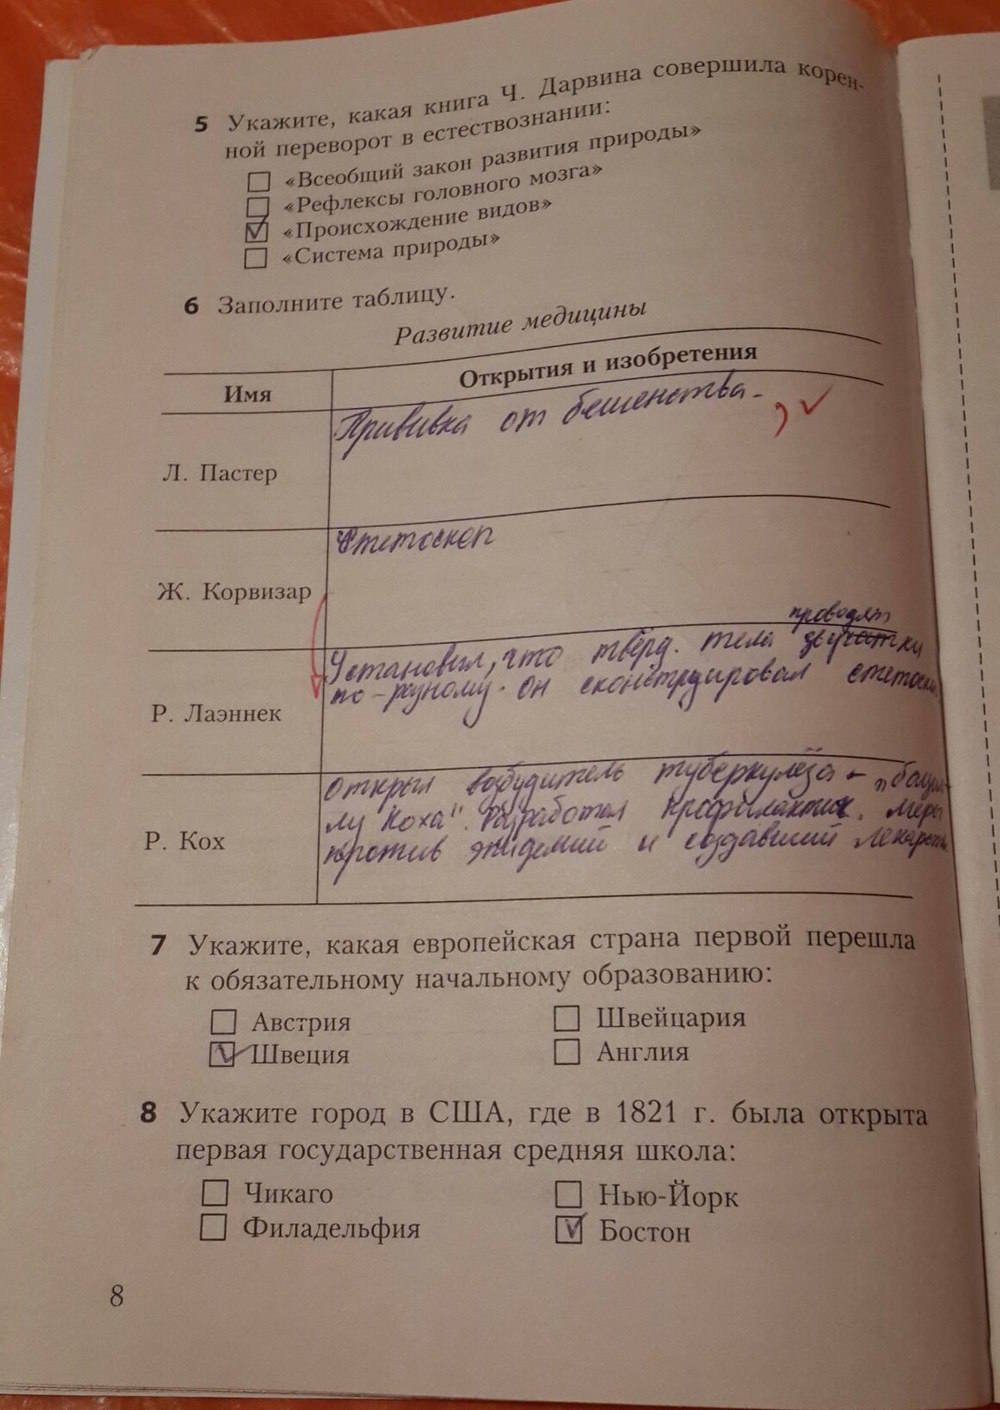 5 Укажите, какая книга Ч. Дарвина совершила корен-
ной переворот в естествознании:
«Всеобщий закон развития природы»
«Рефлексы головного мозга»
«Происхождение видов»
«Система природы»
6 Заполните таблицу.
Развитие медицины
Имя
Открытия и изобретения
Л. Пастер
Прививка от бешенства.
Ж. Корвизар
Стетоскоп
Р. Лаэннек
проводят
Установил, что твёрд. тела звуки
по-разному. Он сконструировал
Р. Кох
Открыл возбудитель туберкулёза -
лу Коха". Разработал профилактич. меры
против эпидемий и создавший
7 Укажите, какая европейская страна первой перешла
к обязательному начальному образованию:
Австрия
Швейцария
Швеция
Англия
8 Укажите город в США, где в 1821 г. была открыта
первая государственная средняя школа:
Чикаго
Нью-Йорк
Филадельфия
Бостон
8